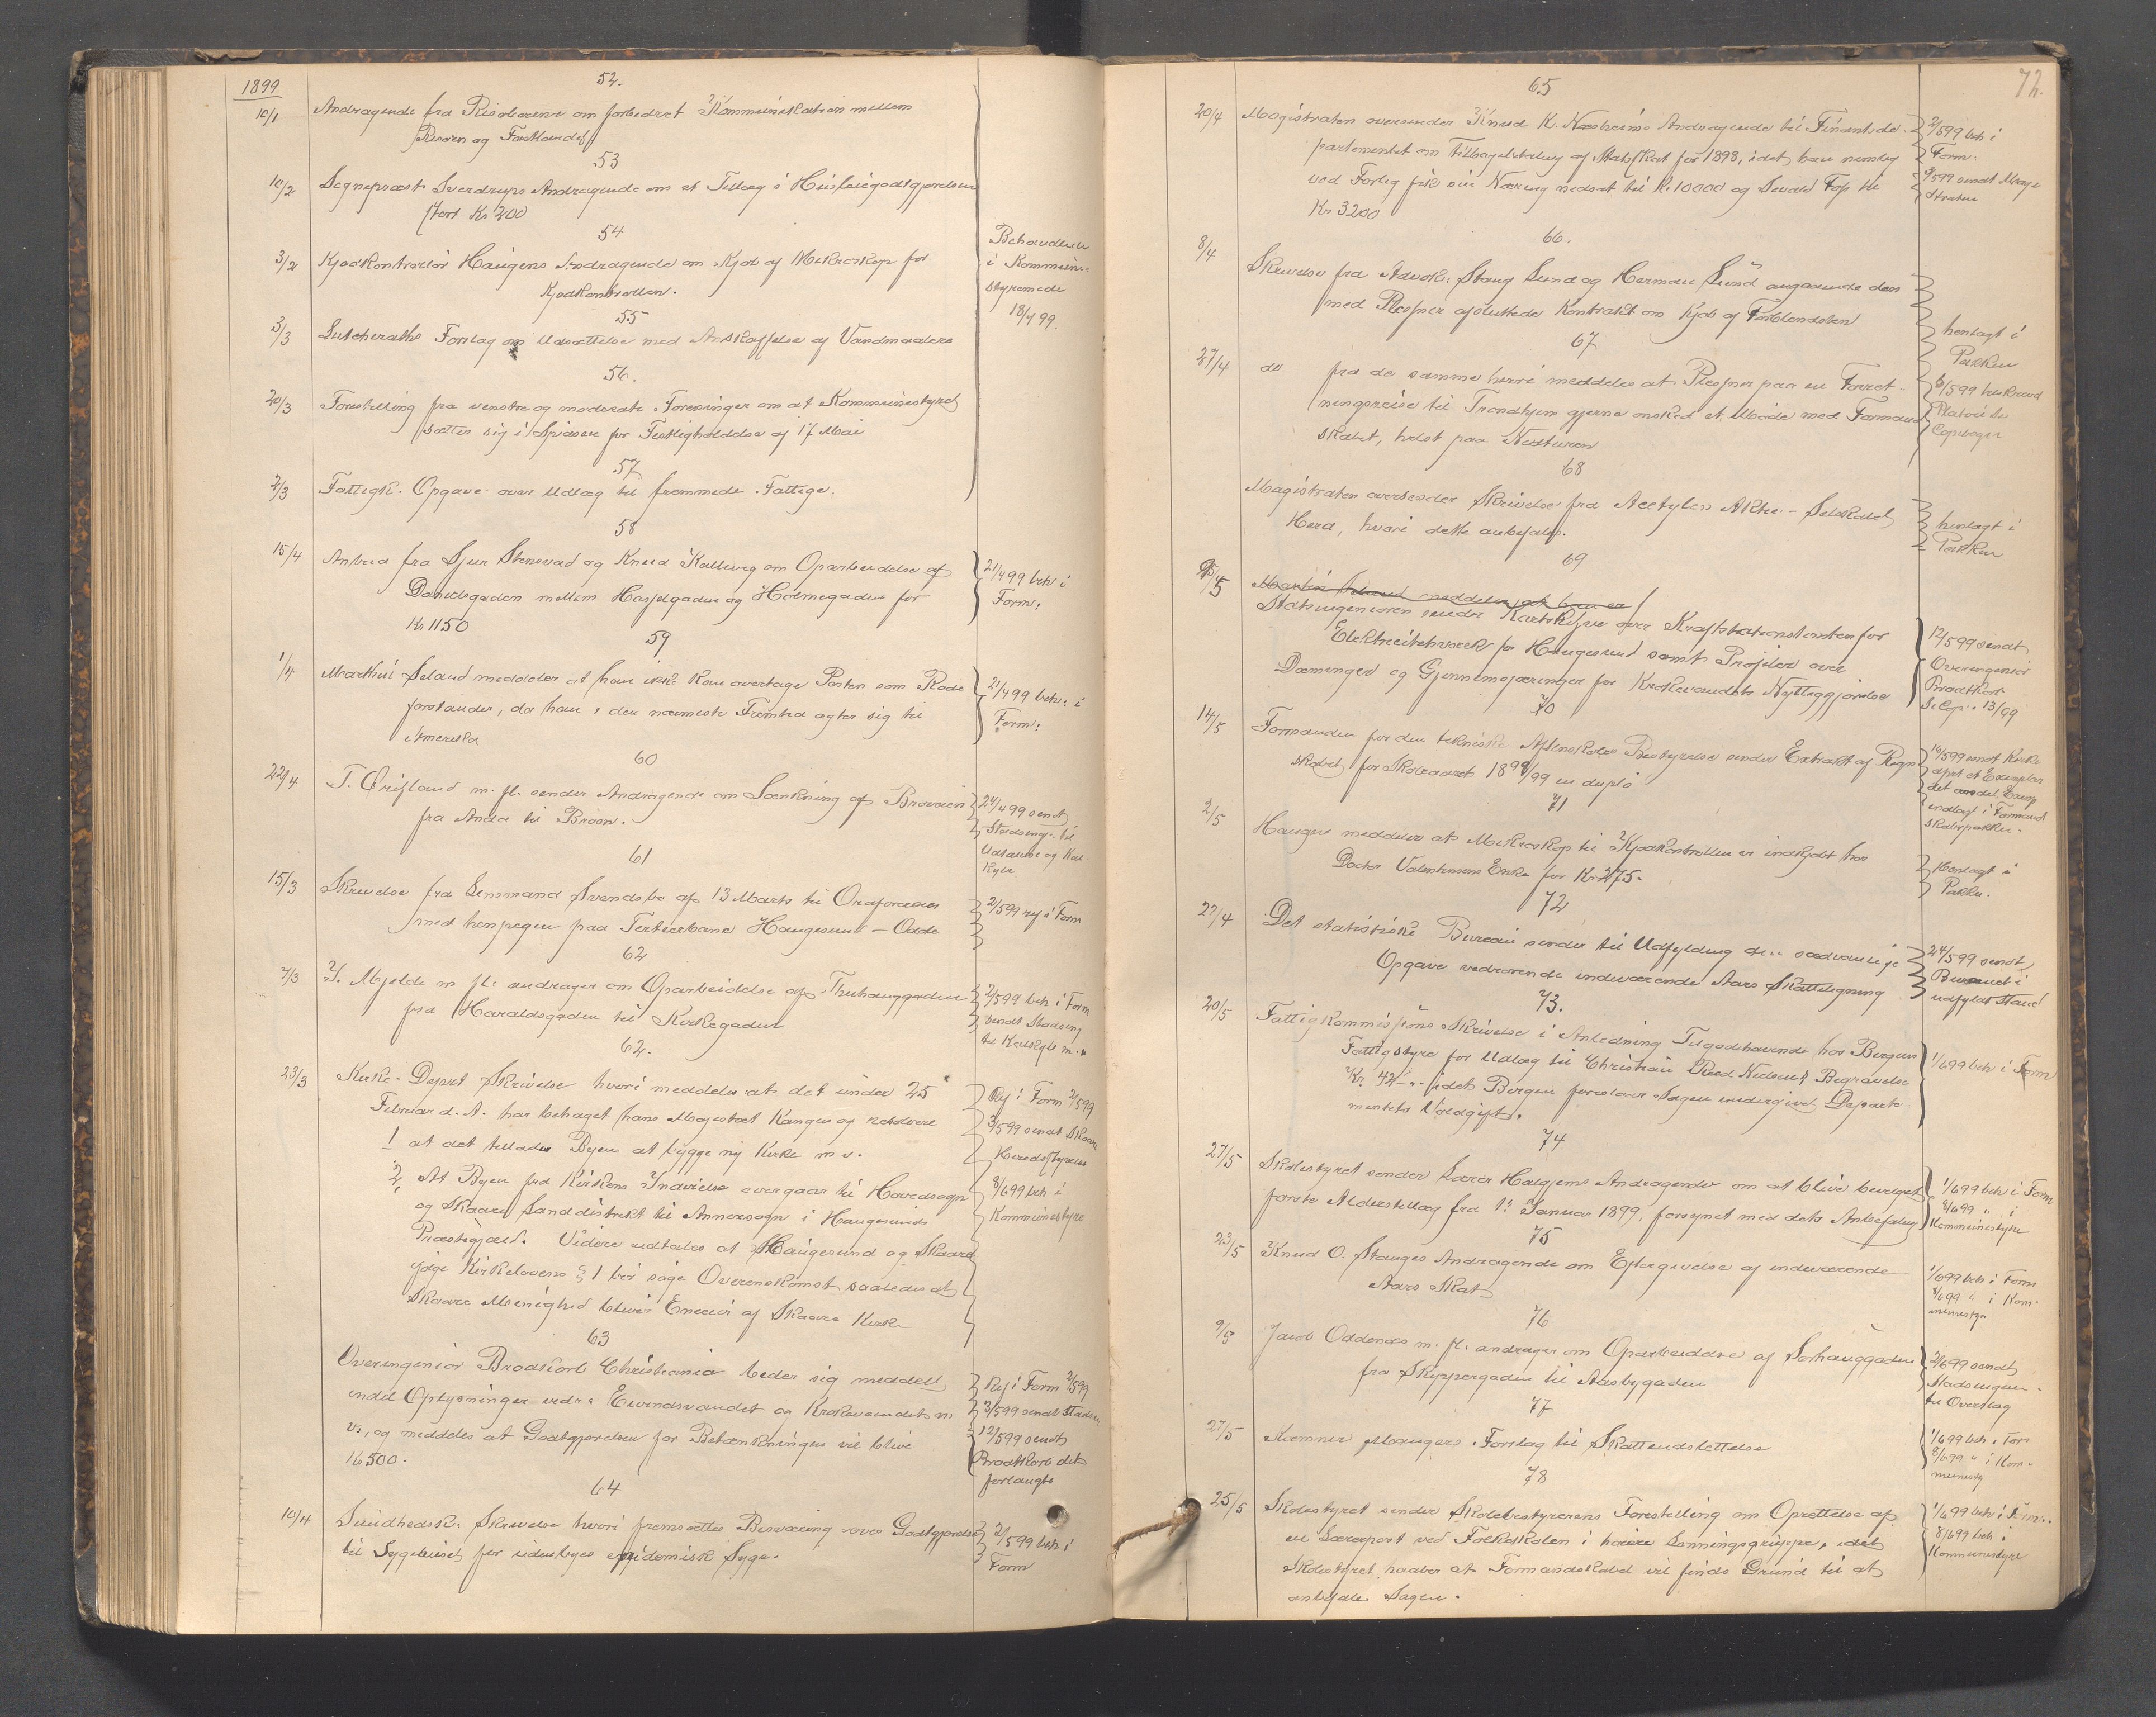 1899
52.
10/1 Andragende fra Risøboerne om forbedret Kommunikation mellem
Risøen og Fastlandet
53
10/2 Sognepræst Sverdrups Andragende om et Tillæg i Husleiegodtgjørelsen
stort Kr 200
54
3/2 Kjødkontrollør Haugens Andragende om Kjøb af Mikroskop for
Kjødkontrollen.
Behandlede
i Kommune-
styremøde
18/4 99.
55
3/3 Forslag om Udsættelse med Anskaffelse af Vandmaalere
56.
20/3 Forestilling fra venstre og moderate Foreninger om at Kommunestyret
sætter sig i Spidsen for Festligholdelse af 17 Mai
57
2/3 Fattigk. Opgave over Udlæg til fremmede Fattige.
58
15/4 Anbud fra Sjur Stensvad og Knud Kallevig om Oparbeidelse af
Davidsgaden mellem Hasselgaden og Holmegaden for
Kr 1150
21/4 99 beh i
Form:
59
1/4 Marthin Søland meddeler at han ikke kan overtage Posten som Rode
forstander, da han i den nærmeste Fremtid agter sig til
Amerika
21/4 99 beh: i
Form:
60
22/4 T. m. fl. sender Andragende om Sænkning af Broveien
fra Anda til Broen.
24/4 99 sendt
Stadsing. til
Udtalelse og Kal-
kyle
61
15/3 Skrivelse fra Lensmand Svendsbø af 13 Marts til Ordføreren
med henpegen paa Tertiærbane Haugesund - Odde
2/5 99 ref i Form
62
7/3 Mjelde m fl. andrager om Oparbeidelse af Thuhauggaden
fra Haraldsgaden til Kirkegaden
2/5 99 beh i Form
sendt Stadsing
til Kalkyle m.
62.
23/3 Kirke-Depart Skrivelse hvori meddeles at det under 25
Februar d. A. har behaget hans Majestæt Kongen og resolvere
1 at det tillades Byen at bygge ny Kirke m v.
2, At Byen fra Kirkens Indvielse overgaar til Hovedsogn
og Skaare Landdistrikt til Annexsogn i Haugesunds
Præstegjæld. Videre udtales at Haugesund og Skaare
ifølge Kirkelovens § 1 bør søge Overenskomst saaledes at
Skaare Menighed bliver Eneeier af Skaare Kirke
Ref i Form 2/5 99
3/5 99 sendt Skaare
Herredsstyrelse
8/6 99 beh i
Kommunestyre
63
Overingeniør Bradtkorb Christiania beder sig meddelt
endel Oplysninger vedr: Eivindsvandet og Krokevandet m
v., og meddeles at Godtgjørelsen for Betænkningen vil blive
Kr 500.
Ref i Form 2/5 99
3/5 99 sendt Stadsin
12/5 99 sendt
Bradtkorb det
forlangte
64
10/4 Sundhedsk: Skrivelse hvori fremsættes Besværing over Godtgjørelse
til Sygehuset for udenbyes epidemisk Syge.
2/5 99 beh i
Form
72.
65
20/4 Magistraten oversender Knud K. Næsheims Andragende til Finantsde-
partementet om Tilbagebetaling af Statsskat for 1898, idet han nemlig
ved Forlig fik sin Næring nedsat til K. 10000 og Sevald Foss til
Kr 3200
2/5 99 beh i
Form:
9/5 99 sendt Magi
straten
66.
8/4 Skrivelse fra Advok: Stang Lund og Herman Lund angaaende den
med Plesner afsluttede Kontrakt om Kjøb af
henlagt i
Pakken
67
27/4 do fra de samme hvori meddeles at Plesner paa en Forret-
ningsreise til Trondhjem gjerne ønsked et Møde med Formand
skabet, helst paa Nedturen
6/5 99 besvaret
68
Magistraten oversender Skrivelse fra Acetylen Aktie-Selskabet
Hera, hvori dette anbefales.
henlagt i
Pakken
69
Marthin Søland meddeler at han er
Statsingeniøren sender Kartskisse over Kraftstationstomten for
Elektricitetsværk for Haugesund samt Profiler over
Dæmninger og Gjennemskjæringer for Krokevandets Nyttiggjørelse
12/5 99 sendt
Overingeniør
Bradtkorb
Se Cop: 13/5 99
70
14/5 Formanden for den tekniske Aftenskoles Bestyrelse sender Extrakt af Regn
skabet for Skoleaaret 1898/99 en duplo
16/5 99 sendt Kirke
dprt et Exemplar
det andet Exmp
indlagt i Formand
skabspakken.
71
2/5 Haugen meddeler at Mikroskop til Kjødkontrollen er indkjøbt hos
Doctor Valentinsens Enke for Kr 275.
Henlagt i
Pakken.
72
27/4 Det statistiske Bureau sender til Udfyldning den sædvanlige
Opgave vedrørende indeværende Aars Skatteligning
24/5 99 sendt
Bureauet i
udfyldt Stand
73.
20/5 Fattigkommissions Skrivelse i Anledning Tilgodehavende hos Bergens
Fattigstyre for Udlæg til Christian Reed Nielsens Begravelse
Kr. 42 - idet Bergen foreslaar Sagen undergivet Departe
mentets Voldgift.
1/6 99 beh i Form
74
27/5 Skolestyret sender Lærer Halgjems Andragende om at blive bevilget
første Alderstillæg fra 1ste Januar 1899, forsynet med dets Anbefaling
1/6 99 beh i Form
8/6 99 " i
Kommunestyre
75
23/5 Knud O. Stanges Andragende om Eftergivelse af indeværende
Aars Skat
1/6 99 beh i Form
8/6 99 " i Kom-
munestyr
76
9/5 Jacob Oddenæs m. fl. andrager om Oparbeidelse af Sørhauggaden
fra Skippergaden til Aasbygaden
2/6 99 sendt
Stadsingen.
til Overslag
77
27/5 Kemner Maugers Forslag til Skatteudslettelse
1/6 99 beh i For
8/6 99 " i Kom-
munesty
78
25/5 Skolestyret sender Skolebestyrerens Forestilling om Oprettelse af
en Lærerpost ved Folkeskolen i høiere Lønningsgruppe, idet
Skolestyret haaber at Formandskabet vil finde Grund til at
anbefale Sagen.
1/6 99 beh i Form.
8/6 99 beh i
Kommunestyre